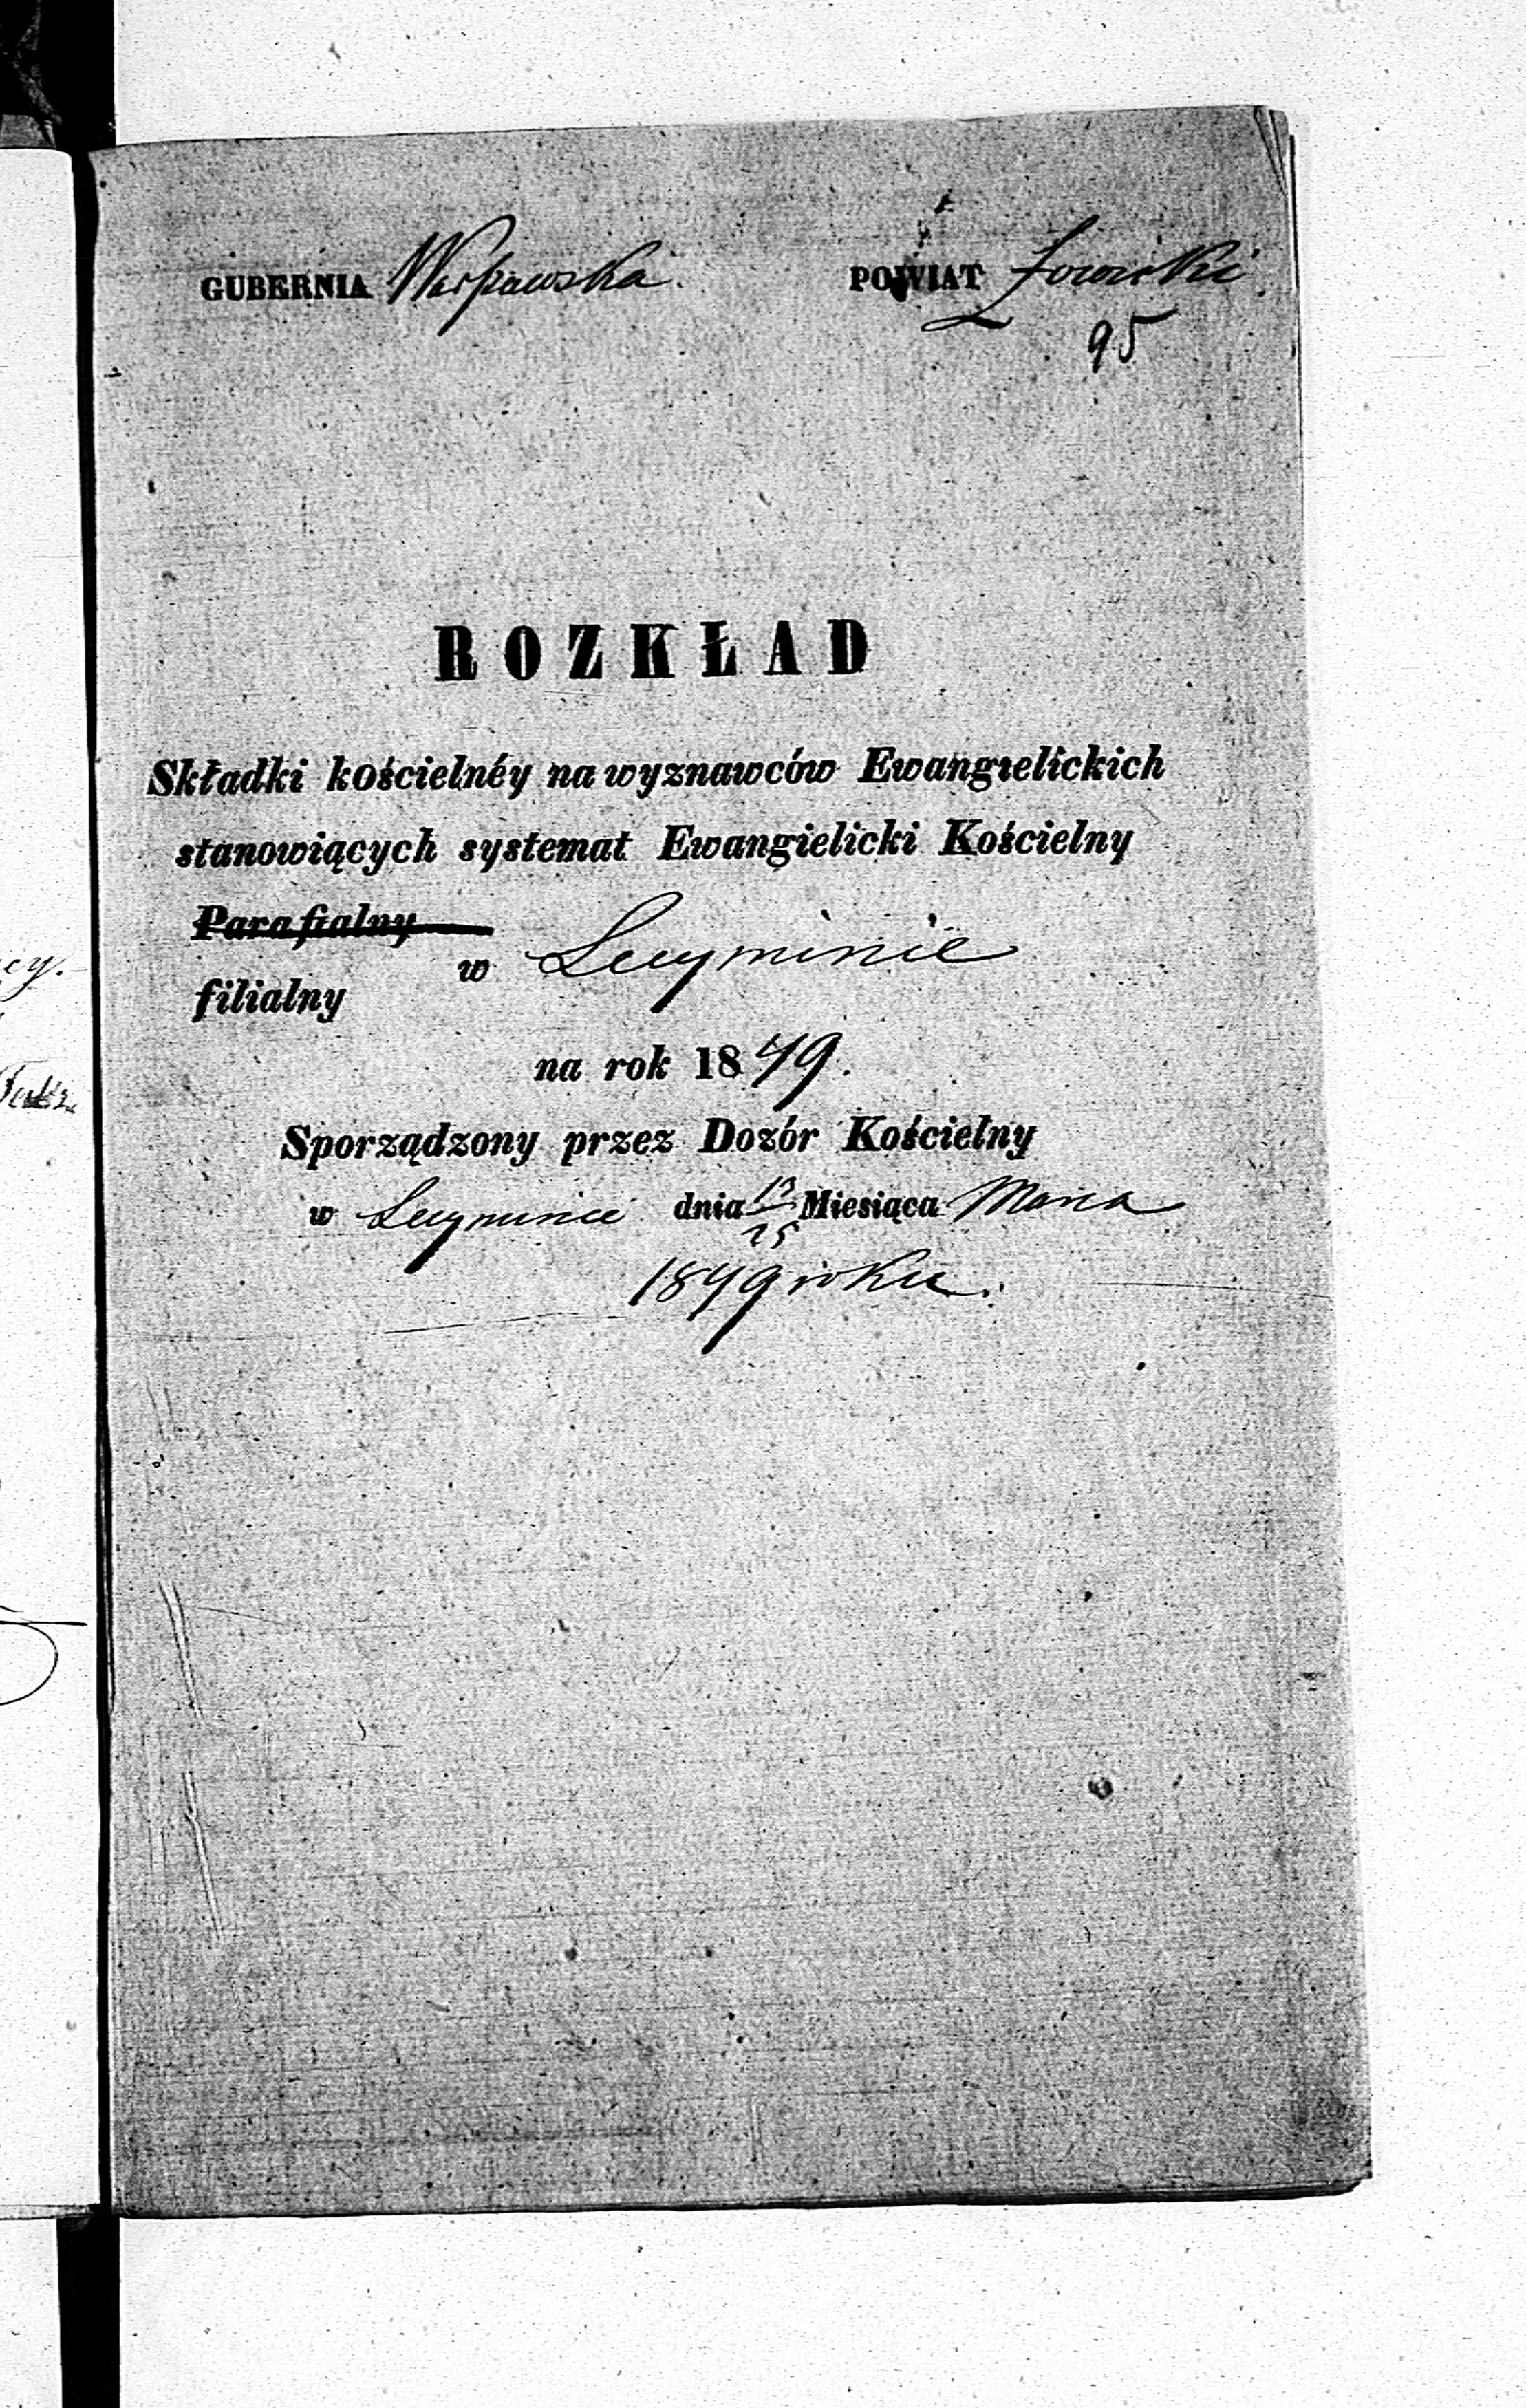 GUBERNIA Warszawska. POWIAT Łowicki.
95
ROZKŁAD
Składki kościelnéy na wyznawców Ewangielickich
stanowiących systemat Ewangielicki Kościelny
Parafialny
w Secyminie
filialny
na rok 1849.
Sporządzony przez Dozór Kościelny
w Secyminie dnia 13/25 Miesiąca Marca
1849 roku.